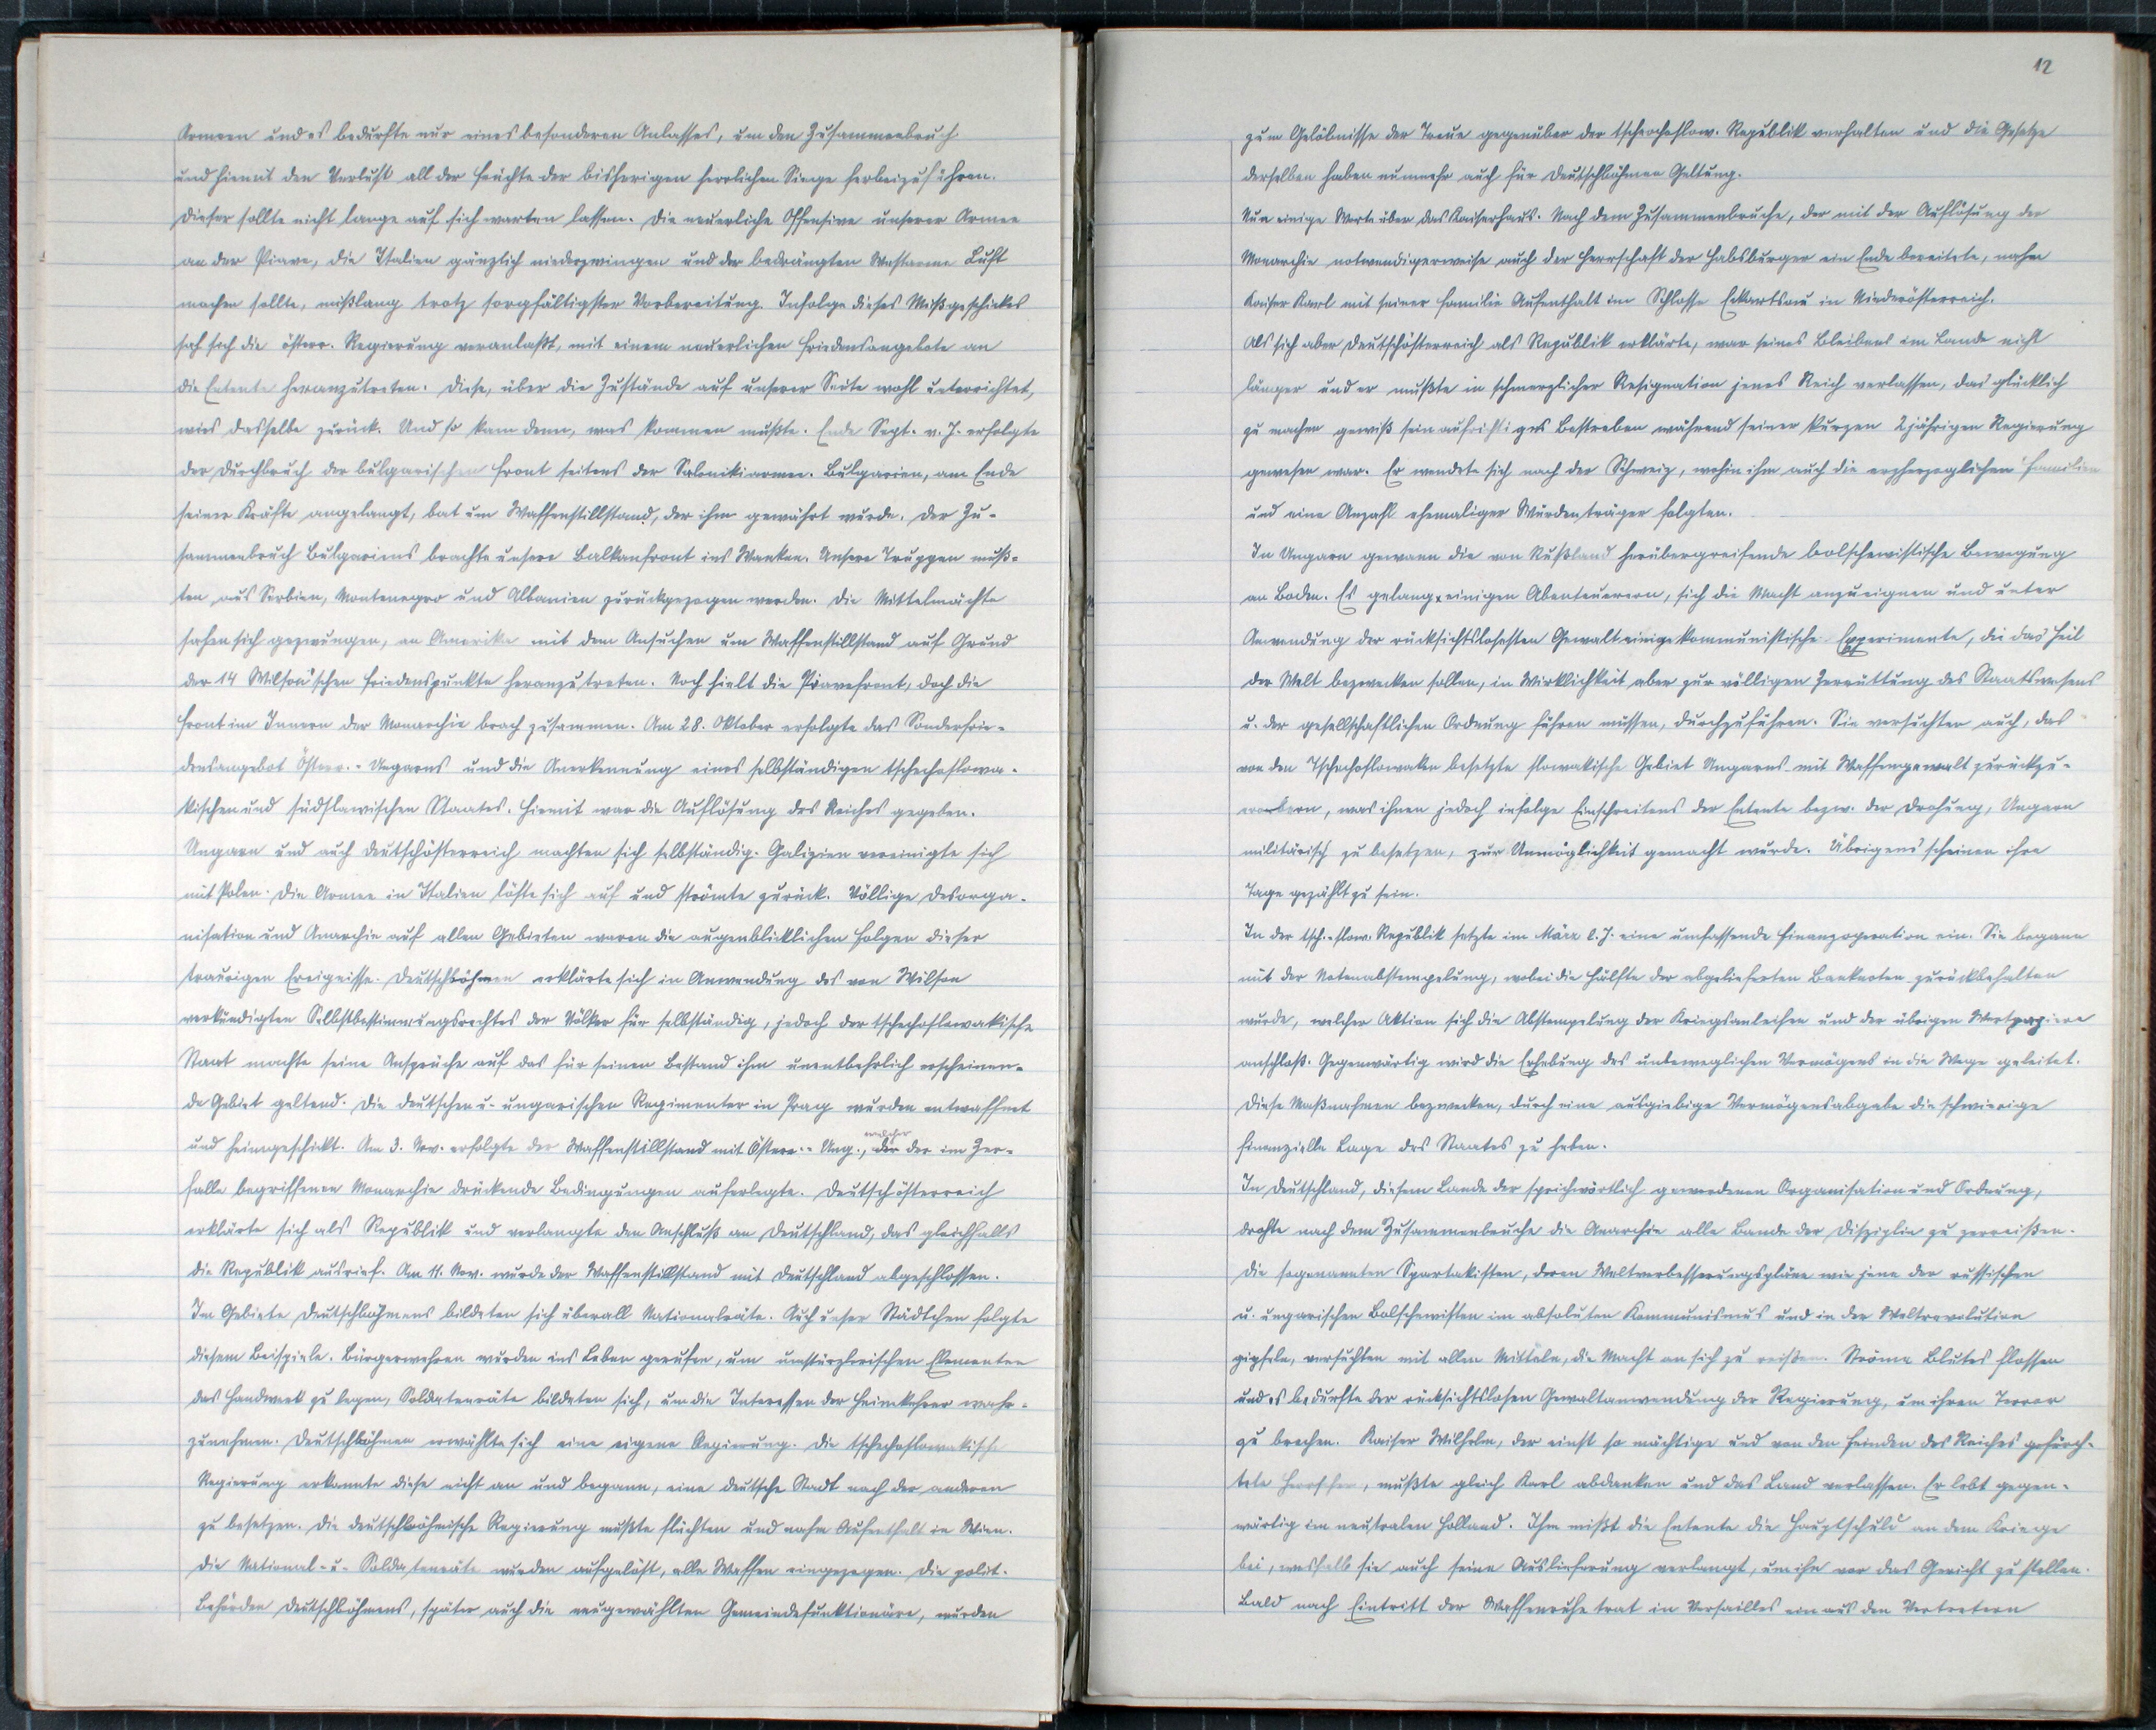 Armeen und es bedurfte nur eines besonderen Anlasses, um den Zusammenbruch
und hiemit den Verlust all der Früchte der bisherigen herrlichen Siege herbeizuführen.
Dieser sollte nicht lange auf sich warten lassen. Die neuerliche Offensive unserer Armee
an der Piave, die Italien gänzlich niederzwingen und der bedrängten Westarmee Luft
machen sollte, mißlang trotz sorgfältigster Vorbereitung. Infolge dieses Mißgeschickes
sah sich die österr. Regierung veranlaßt, mit einem neuerlichen Friedensangebote an
die Entente heranzutreten. Diese, über die Zustände auf unserer Seite wohl unterrichtet,
wies dasselbe zurück. Und so kam denn, was kommen mußte. Ende Sept. v. J. erfolgte
der Durchbruch der bulgarischen Front seitens der Salonikiarmee. Bulgarien, am Ende
seiner Kräfte angelangt, bat um Waffenstillstand, der ihm gewährt wurde. Der Zu-
sammenbruch Bulgariens brachte unsere Balkanfront ins Wanken. Unsere Truppen muß-
ten aus Serbien, Montenegro und Albanien zurückgezogen werden. Die Mittelmächte
sahen sich gezwungen, an Amerika mit dem Ansuchen um Waffenstillstand auf Grund
der 14 Wilson'schen Friedenspunkte heranzutreten. Noch hielt die Piavefront, doch die
Front im Innern der Monarchie brach zusammen. Am 28. Oktober erfolgte das Sonderfrie-
densangebot Österr.-Ungarns und die Anerkennung eines selbständigen tschechoslowa-
kischen und südslawischen Staates. Hiemit war die Auflösung des Reiches gegeben.
Ungarn und auch Deutschösterreich machten sich selbständig. Galizien vereinigte sich
mit Polen. Die Armee in Italien löste sich auf und strömte zurück. Völlige Desorga-
nisation und Anarchie auf allen Gebieten waren die augenblicklichen Folgen dieser
traurigen Ereignisse. Deutschböhmen erklärte sich in Anwendung des von Wilson
verkündigten Selbstbestimmungsrechtes der Völker für selbständig, jedoch der tschechoslowakische
Staat machte seine Ansprüche auf das für seinen Bestand ihm unentbehrlich erscheinen-
de Gebiet geltend. Die deutschen u. ungarischen Regimenter in Prag wurden entwaffnet
und heimgeschickt. Am 3. Nov. erfolgte der Waffenstillstand mit Österr.-Ung., welcher der im Zer-
falle begriffenen Monarchie drückende Bedingungen auferlegte. Deutschösterreich
erklärte sich als Republik und verlangte den Anschluß an Deutschland, das gleichfalls
die Republik ausrief. Am 11. Nov. wurde der Waffenstillstand mit Deutschland abgeschlossen.
Im Gebiete Deutschböhmens bildeten sich überall Nationalräte. Auch unser Städtchen folgte
diesem Beispiele. Bürgerwehren wurden ins Leben gerufen, um umstürzlerischen Elementen
das Handwerk zu legen, Soldatenräte bildeten sich, um die Interessen der Heimkehrer wahr-
zunehmen. Deutschböhmen erwählte sich eine eigene Regierung. Die tschechoslowakische
Regierung erkannte diese nicht an und begann, eine deutsche Stadt nach der anderen
zu besetzen. Die deutschböhmische Regierung mußte flüchten und nahm Aufenthalt in Wien.
Die National- u. Soldatenräte wurden aufgelöst, alle Waffen eingezogen. Die polit.
Behörden Deutschböhmens, später auch die neugewählten Gemeindefunktionäre, wurden
12
zum Gelöbnisse der Treue gegenüber der tschechoslow. Republik verhalten und die Gesetze
derselben haben nunmehr auch für Deutschböhmen Geltung.
Nun einige Worte über das Kaiserhaus. Nach dem Zusammenbruche, der mit der Auflösung der
Monarchie notwendigerweise auch der Herrschaft der Habsburger ein Ende bereitete, nahm
Kaiser Karl mit seiner Familie Aufenthalt im Schlosse Eckartsau in Niederösterreich.
Als sich aber Deutschösterreich als Republik erklärte, war seines Bleibens im Lande nicht
länger und er mußte in schmerzlicher Resignation jenes Reich verlassen, das glücklich
zu machen gewiß sein aufrichtiges Bestreben während seiner kurzen 2jährigen Regierung
gewesen war. Er wendete sich nach der Schweiz, wohin ihm auch die erzherzoglichen Familien
und eine Anzahl ehemaliger Würdenträger folgten.
In Ungarn gewann die von Rußland herübergreifende bolschewistische Bewegung
an Boden. Es gelang einigen Abenteuerern, sich die Macht anzueignen und unter
Anwendung der rücksichtslosesten Gewalt einige kommunistische Experimente, die das Heil
der Welt bezwecken sollen, in Wirklichkeit aber zur völligen Zerrüttung des Staatswesens
u. der gesellschaftlichen Ordnung führen müssen, durchzuführen. Sie versuchten auch, das
von den Tschechoslowaken besetzte slowakische Gebiet Ungarns mit Waffengewalt zurückzu-
erobern, was ihnen jedoch infolge Einschreitens der Entente bezw. der Drohung, Ungarn
militärisch zu besetzen, zur Unmöglichkeit gemacht wurde. Übrigens scheinen ihre
Tage gezählt zu sein.
In der tsch.-slow. Republik setzte im März l. J. eine umfassende Finanzoperation ein. Sie begann
mit der Notenabstempelung, wobei die Hälfte der abgelieferten Banknoten zurückbehalten
wurde, welcher Aktion sich die Abstempelung der Kriegsanleihen und der übrigen Wertpapiere
anschloß. Gegenwärtig wird die Erhebung des unbeweglichen Vermögens in die Wege geleitet.
Diese Maßnahmen bezwecken, durch eine ausgiebige Vermögensabgabe die schwierige
finanzielle Lage des Staates zu heben.
In Deutschland, diesem Lande der sprichwörtlich gewordenen Organisation und Ordnung,
drohte nach dem Zusammenbruche die Anarchie alle Bande der Disziplin zu zerreißen.
Die sogenannten Spartakisten, deren Weltverbesserungspläne wie jene der russischen
u. ungarischen Bolschewisten im absoluten Kommunismus und in der Weltrevolution
gipfeln, versuchten mit allen Mitteln, die Macht an sich zu reißen. Ströme Blutes flossen
und es bedurfte der rücksichtslosen Gewaltanwendung der Regierung, um ihren Terror
zu brechen. Kaiser Wilhelm, der einst so mächtige und von den Feinden des Reiches gefürch-
tete Herrscher, mußte gleich Karl abdanken und das Land verlassen. Er lebt gegen-
wärtig im neutralen Holland. Ihm mißt die Entente die Hauptschuld an dem Kriege
bei, weshalb sie auch seine Auslieferung verlangt, um ihn vor das Gericht zu stellen.
Bald nach Eintritt der Waffenruhe trat in Versailles ein aus den Vertretern